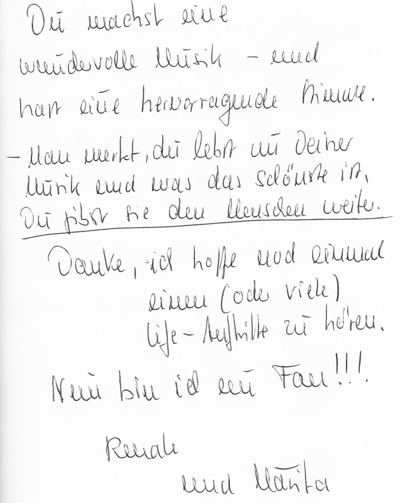 Du machst eine
wundervolle Musik – und
hast eine hervorragende Stimme.
– Man merkt, du lebst in Deiner
Musik und was das schönste ist,
Du gibst sie den Menschen weiter.
Danke, ich hoffe noch einmal
einen (oder viele)
Life-Auftritte zu hören.
Nun bin ich ein Fan!!!
Renate
und Marita